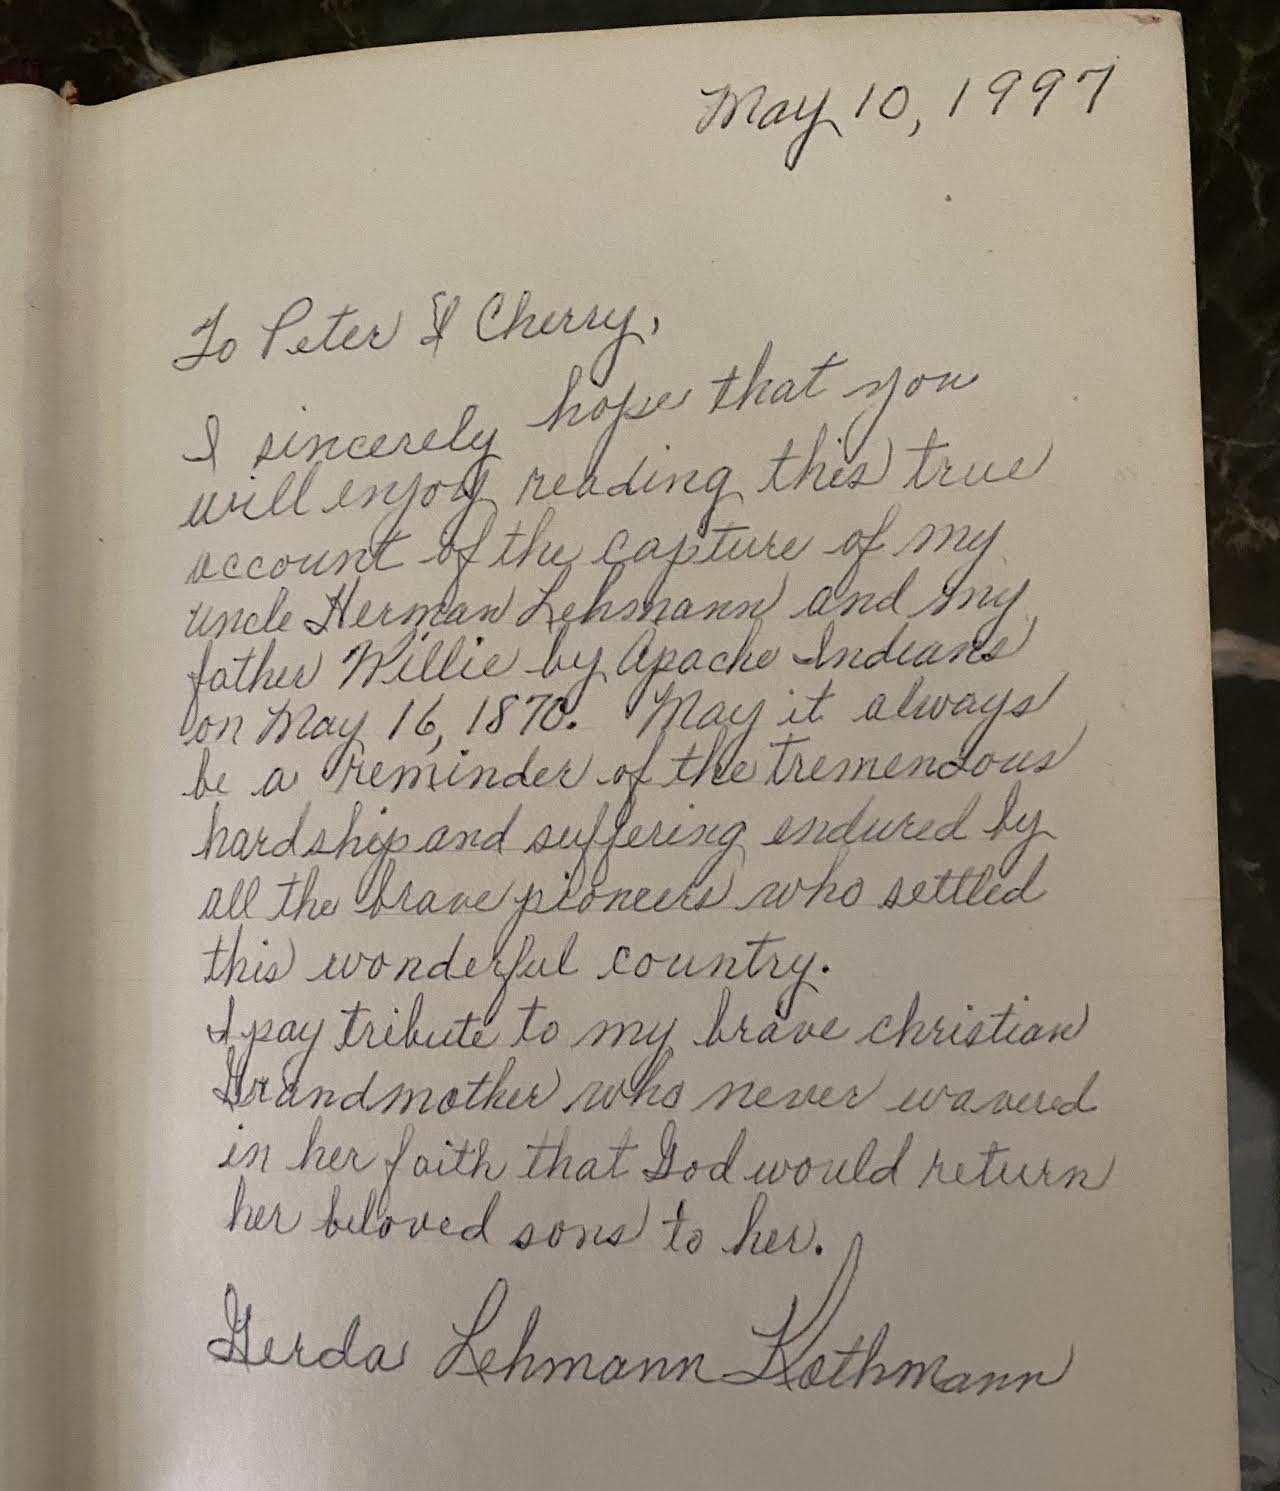 May 10, 1997
To Peter & Cherry,
I sincerely hope that you
will enjoy reading this true
account of the capture of my
uncle Herman Lehmann and my
father Willie by Apache Indians
on May 16, 1870. May it always
be a reminder of the tremendous
hardship and suffering endured by
all the brave pioneers who settled
this wonderful country.
I pay tribute to my brave christian
Grandmother who never wavered
in her faith that God would return
her beloved sons to her.
Gerda Lehmann Kothmann